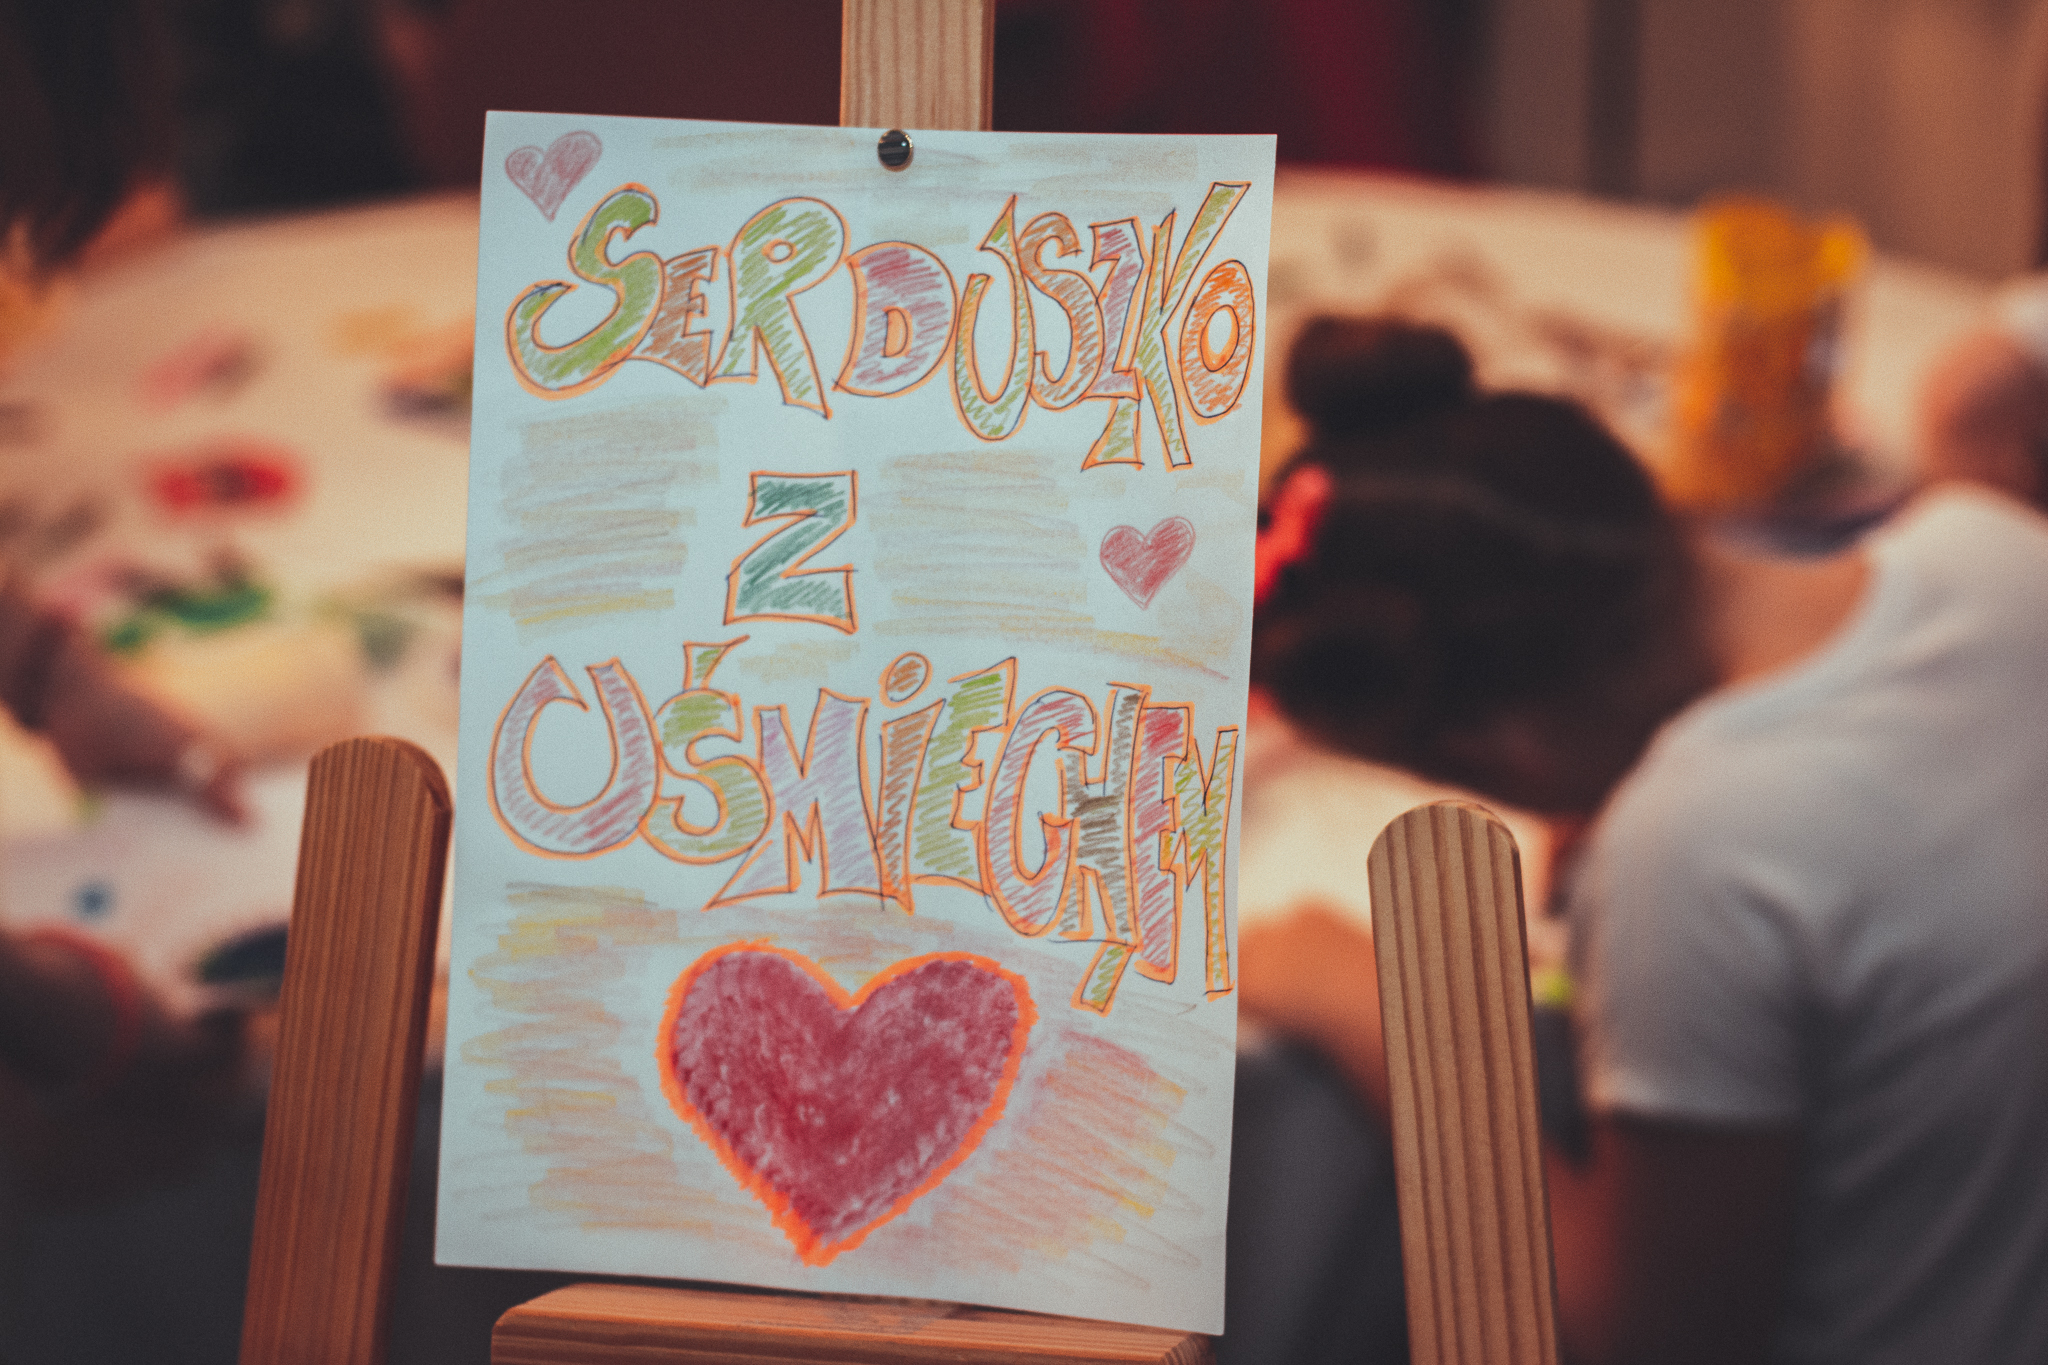 SERDUSZKO
Z
UŚMIECHEM